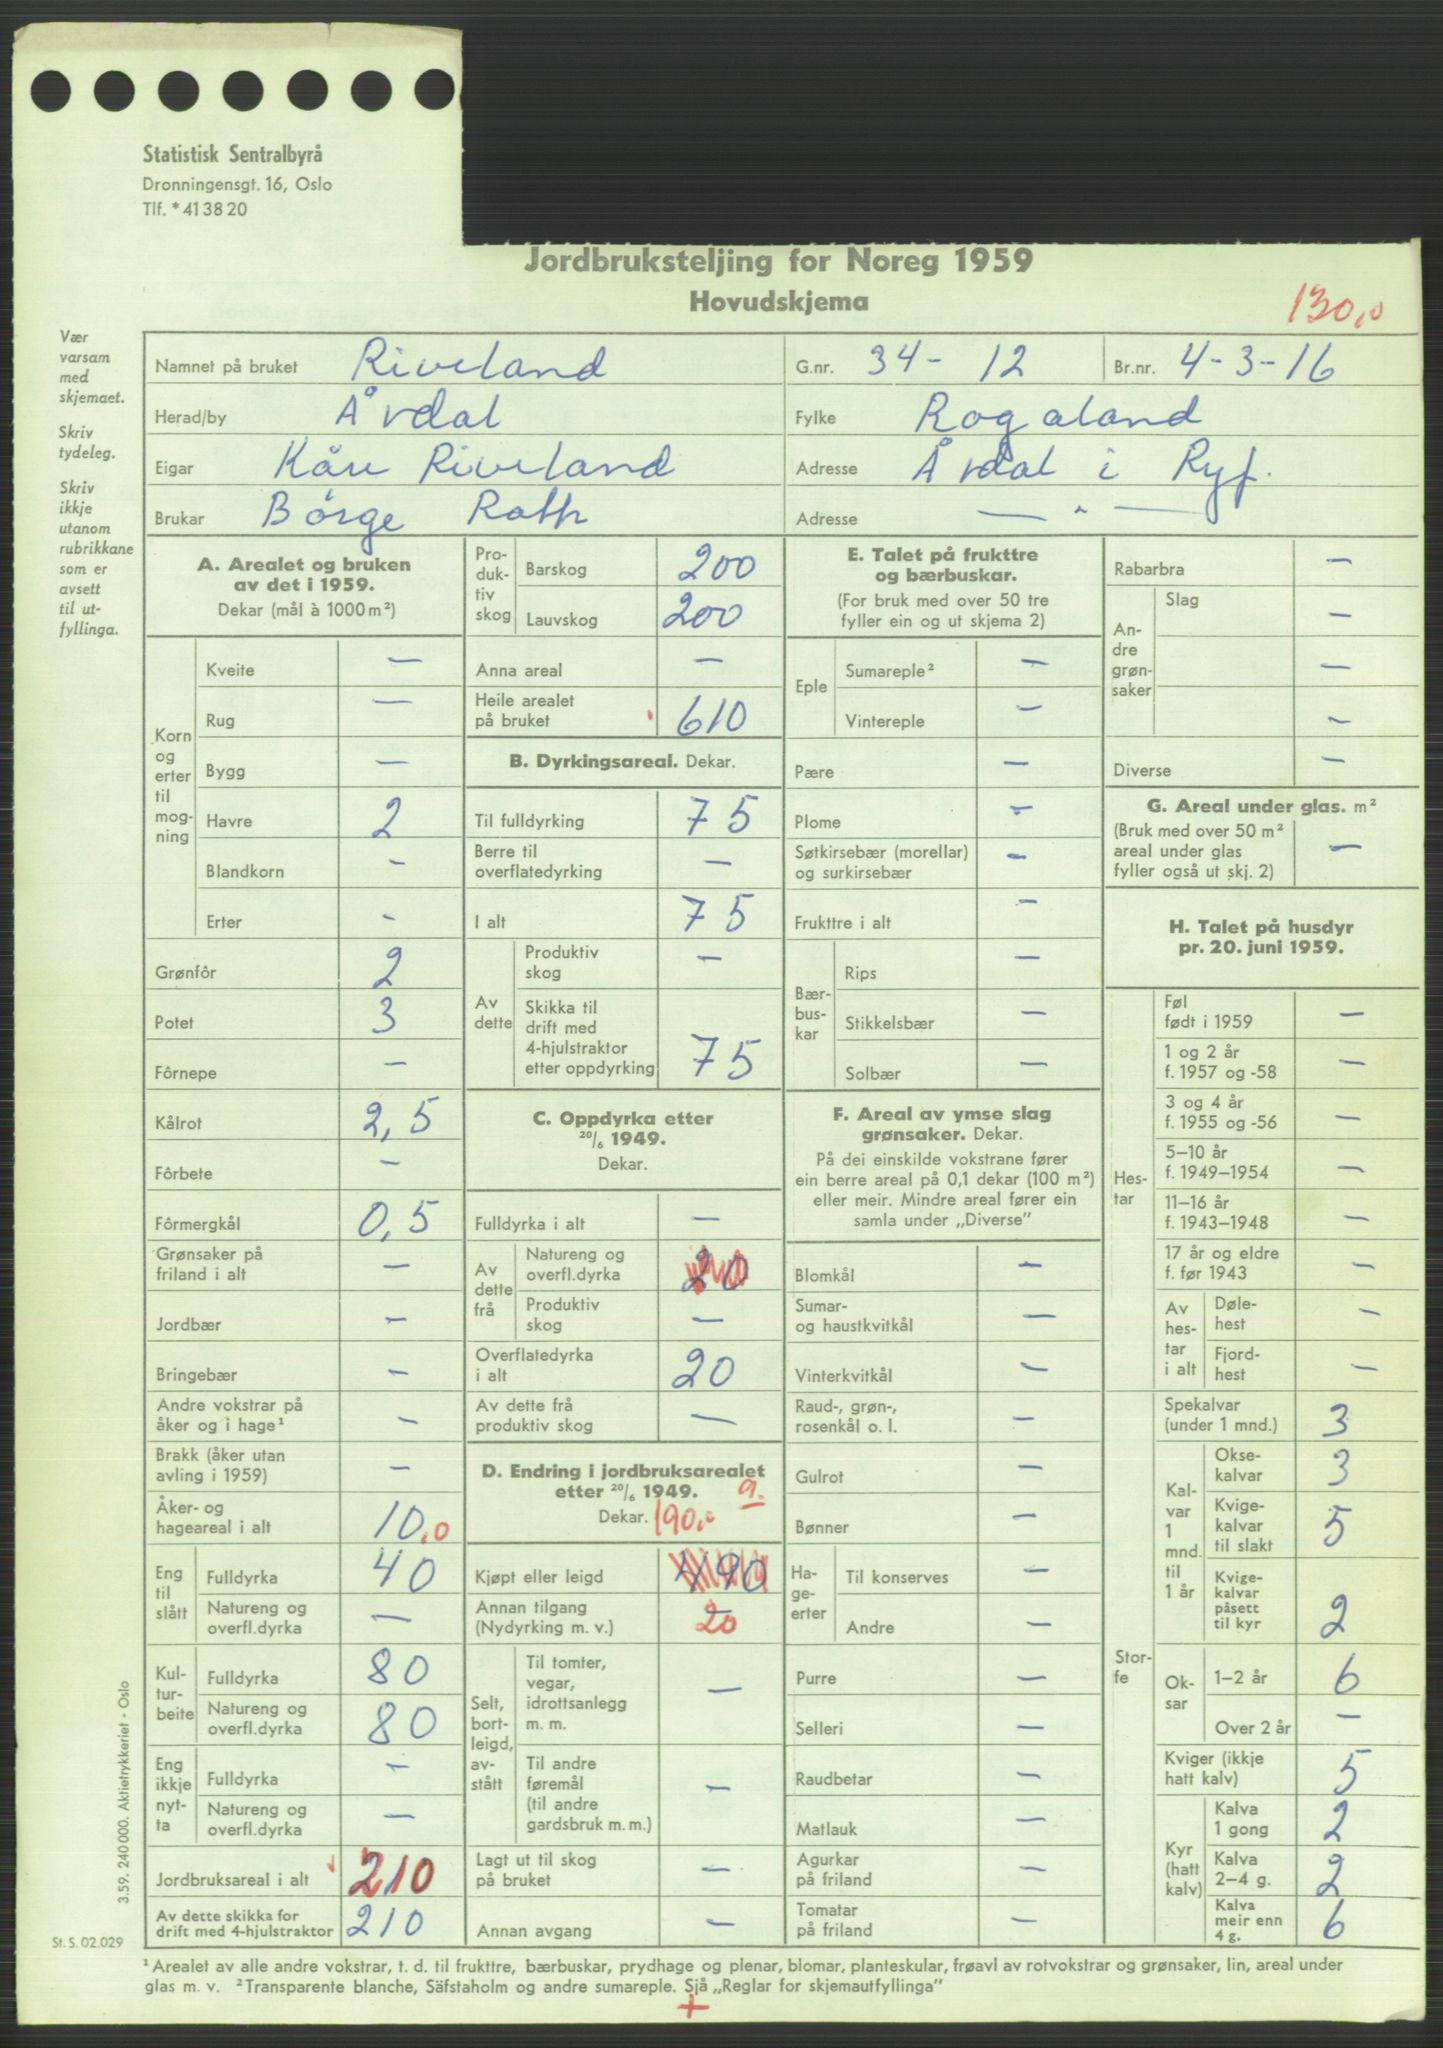 Statistisk Sentralbyrå
Dronningensgt. 16, Oslo
Tlf. * 41 38 20
Jordbruksteljing for Noreg 1959
Hovudskjema
130,0
Vær
varsam
med
skjemaet.
Skriv
tydeleg.
Skriv
ikkje
utanom
rubrikkane
som er
avsett
til ut-
fyllinga.
Namnet på bruket Riveland G.nr. 34 - 12 Br.nr. 4-3-16
Herad/by Årdal Fylke Rogaland
Eigar Kåre Riveland Adresse Årdal i Ryf.
Brukar Börge Rath Adresse — " —
A. Arealet og bruken
av det i 1959.
Dekar (mål à 1000 m²)
Korn
og
erter
til
mog-
ning
Kveite —
Rug —
Bygg —
Havre 2
Blandkorn -
Erter -
Grønfôr 2
Potet 3
Fôrnepe -
Kålrot 2,5
Fôrbete -
Fôrmergkål 0,5
Grønsaker på
friland i alt -
Jordbær -
Bringebær -
Andre vokstrar på
åker og i hage¹ -
Brakk (åker utan
avling i 1959) -
Åker- og
hageareal i alt 10,0
Eng
til
slått
Fulldyrka 40
Natureng og
overfl.dyrka —
Kul-
tur-
beite
Fulldyrka 80
Natureng og
overfl.dyrka 80
Eng
ikkje
nyt-
ta
Fulldyrka -
Natureng og
overfl.dyrka —
Jordbruksareal i alt 210
Av dette skikka for
drift med 4-hjulstraktor 210
Pro-
duk-
tiv
skog
Barskog 200
Lauvskog 200
Anna areal —
Heile arealet
på bruket 610
B. Dyrkingsareal. Dekar.
Til fulldyrking 75
Berre til
overflatedyrking —
I alt 75
Av
dette
Produktiv
skog —
Skikka til
drift med
4-hjulstraktor
etter oppdyrking 75
C. Oppdyrka etter
20/6 1949.
Dekar.
Fulldyrka i alt —
Av
dette
frå
Natureng og
overfl.dyrka 20
Produktiv
skog —
Overflatedyrka
i alt 20
Av dette frå
produktiv skog —
D. Endring i jordbruksarealet
etter 20/6 1949. a.
Dekar. 190,0
Kjøpt eller leigd 190
Annan tilgang
(Nydyrking m. v.) 20
Selt,
bort-
leigd,
av-
stått
Til tomter,
vegar,
idrottsanlegg
m. m. —
Til andre
føremål
(til andre
gardsbruk m. m.) -
Lagt ut til skog
på bruket —
Annan avgang -
E. Talet på frukttre
og bærbuskar.
(For bruk med over 50 tre
fyller ein og ut skjema 2)
Eple
Sumareple² -
Vintereple -
Pære -
Plome -
Søtkirsebær (morellar)
og surkirsebær -
Frukttre i alt -
Bær-
bus-
kar
Rips -
Stikkelsbær -
Solbær -
F. Areal av ymse slag
grønsaker. Dekar.
På dei einskilde vokstrane fører
ein berre areal på 0,1 dekar (100 m²)
eller meir. Mindre areal fører ein
samla under „Diverse”
Blomkål -
Sumar-
og haustkvitkål —
Vinterkvitkål -
Raud-, grøn-,
rosenkål o. l. -
Gulrot -
Bønner -
Ha-
ge-
erter
Til konserves -
Andre -
Purre -
Selleri -
Raudbetar -
Matlauk —
Agurkar
på friland -
Tomatar
på friland -
Rabarbra -
An-
dre
grøn-
saker
Slag
-
-
-
Diverse -
G. Areal under glas. m²
(Bruk med over 50 m²
areal under glas
fyller også ut skj. 2) —
H. Talet på husdyr
pr. 20. juni 1959.
Hes-
tar
Føl
født i 1959 -
1 og 2 år
f. 1957 og -58 -
3 og 4 år
f. 1955 og -56 -
5–10 år
f. 1949–1954 -
11–16 år
f. 1943–1948 -
17 år og eldre
f. før 1943 -
Av
hes-
tar
i alt
Døle-
hest -
Fjord-
hest -
Stor-
fe
Spekalvar
(under 1 mnd.) 3
Kal-
var
1
mnd.
til
1 år
Okse-
kalvar 3
Kvige-
kalvar
til slakt 5
Kvige-
kalvar
påsett
til kyr 2
Ok-
sar
1–2 år 6
Over 2 år —
Kviger (ikkje
hatt kalv) 5
Kyr
(hatt
kalv)
Kalva
1 gong 2
Kalva
2–4 g. 2
Kalva
meir enn
4 g. 6
3.59. 240 000. Aktietrykkeriet - Oslo
St. S. 02.029
¹ Arealet av alle andre vokstrar, t. d. til frukttre, bærbuskar, prydhage og plenar, blomar, planteskular, frøavl av rotvokstrar og grønsaker, lin, areal under
glas m. v. ² Transparente blanche, Säfstaholm og andre sumareple. Sjå „Reglar for skjemautfyllinga”
+